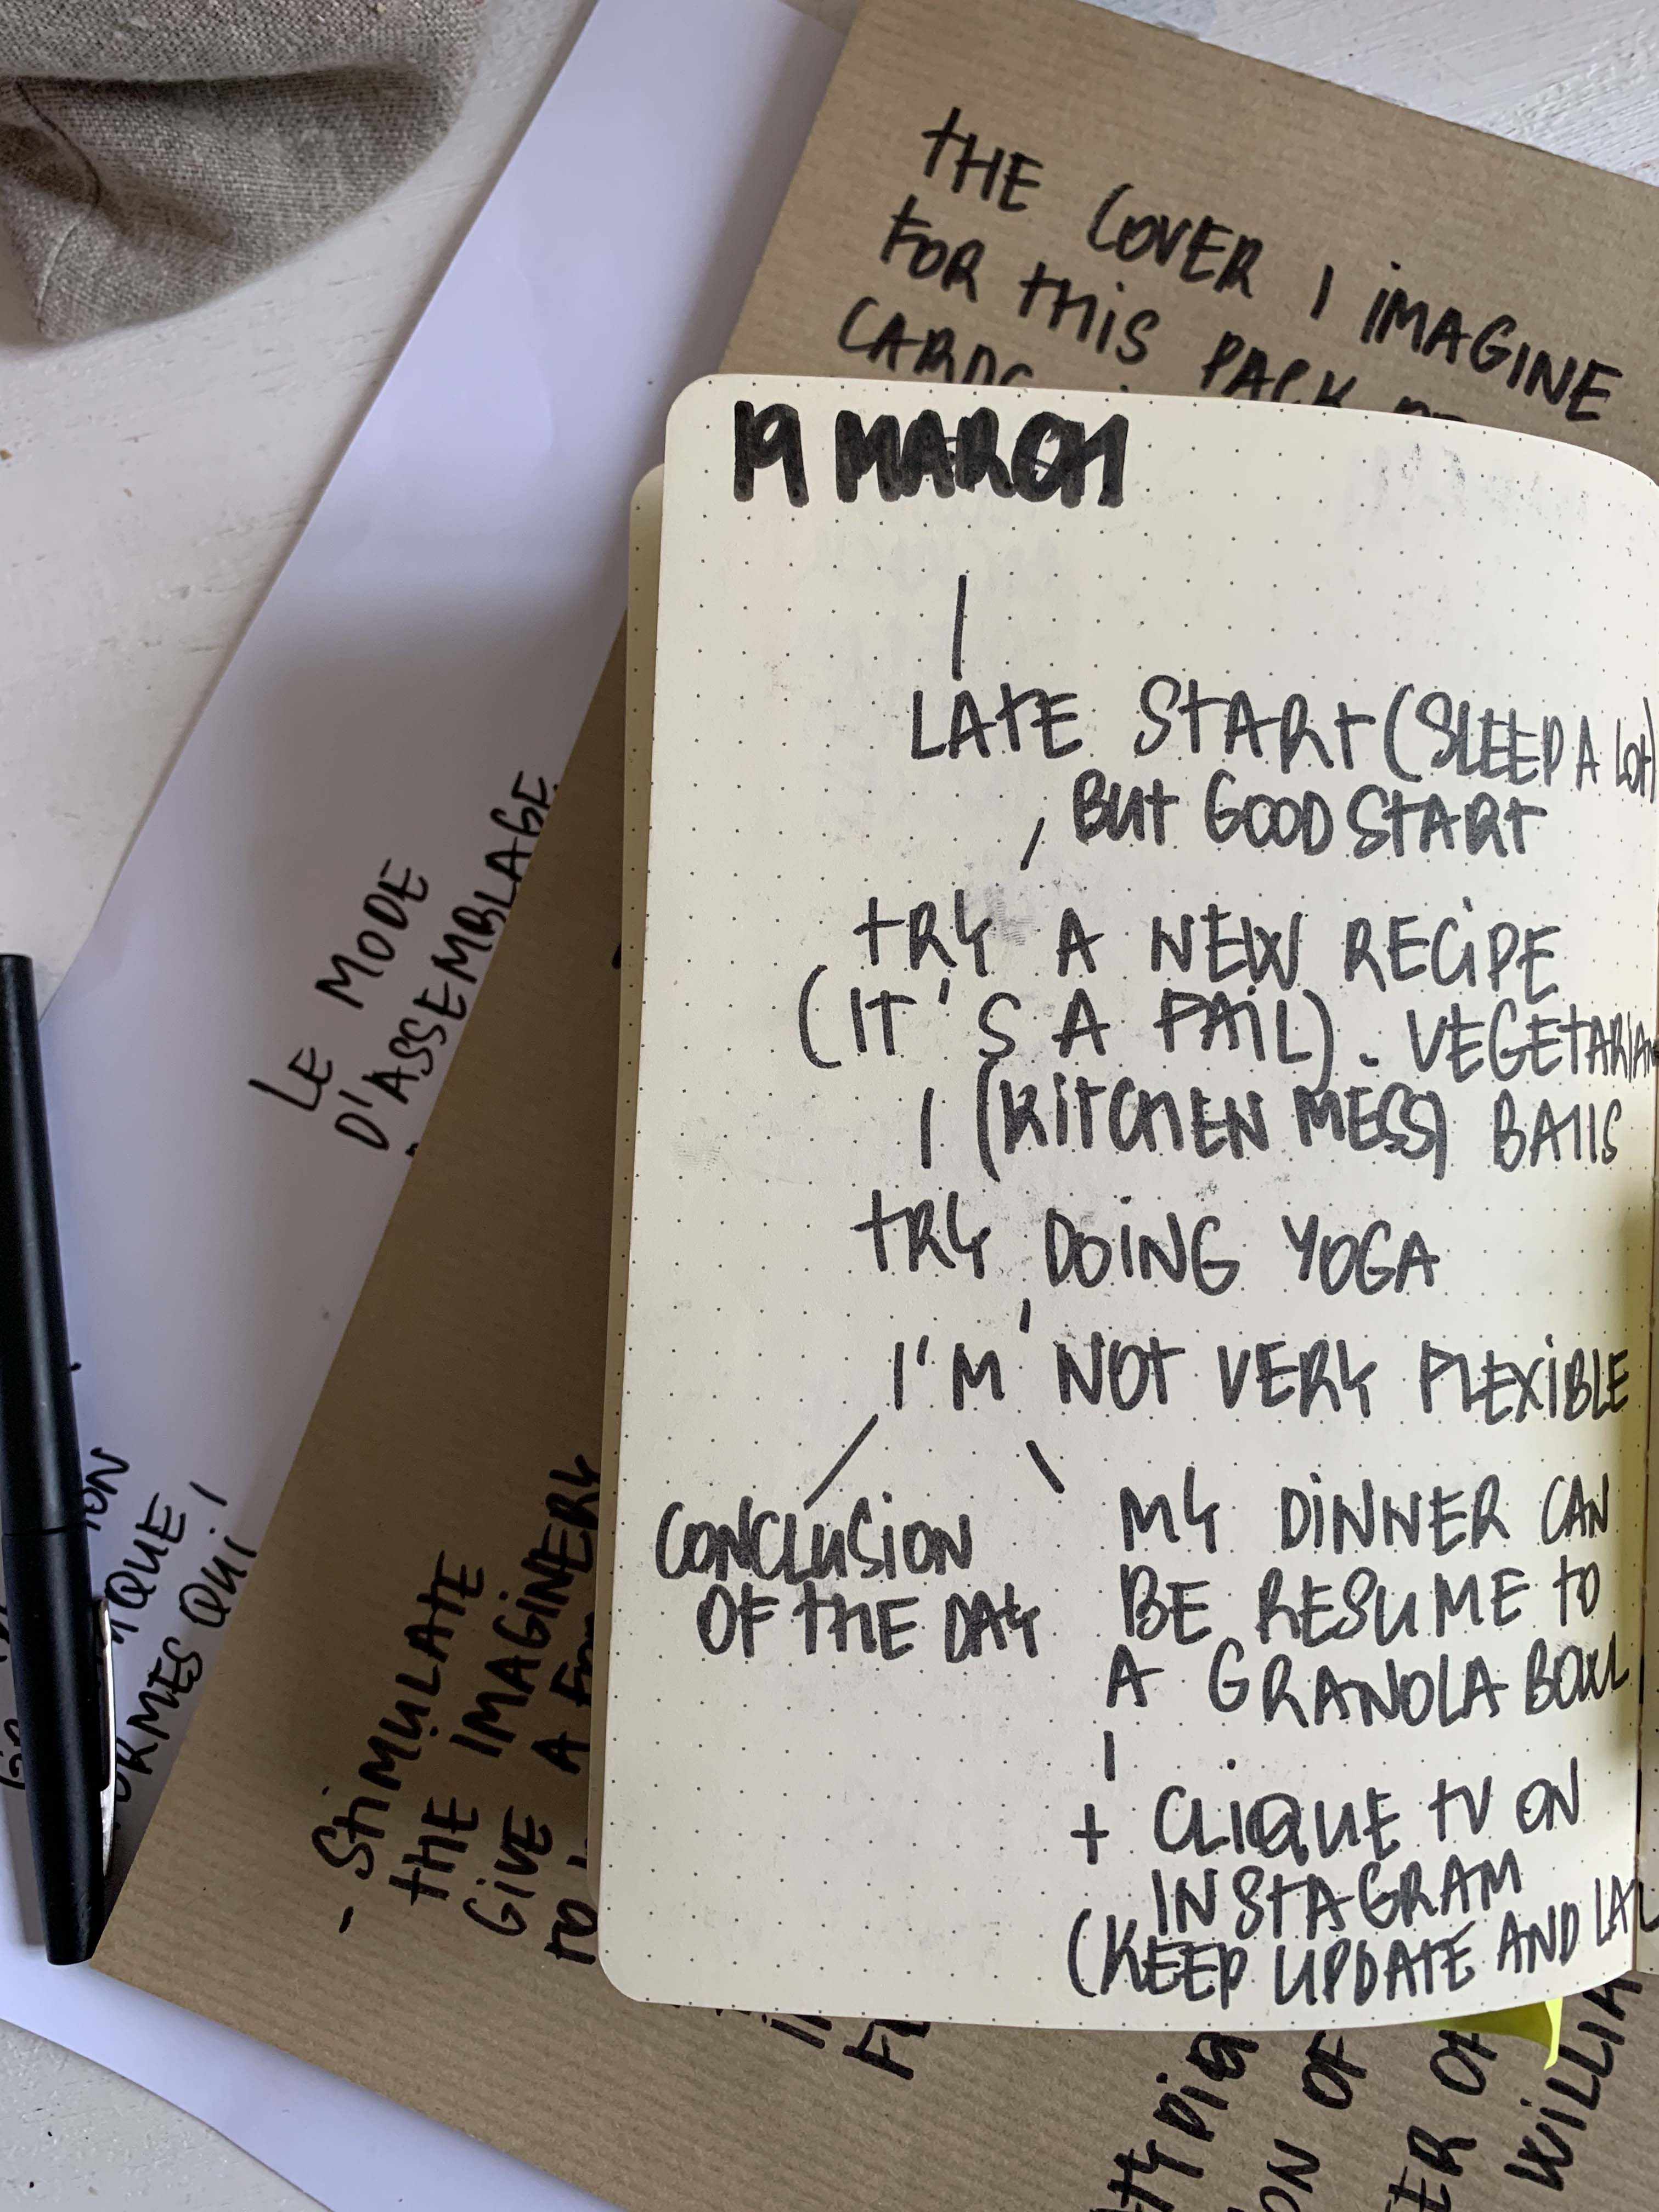 THE COVER I IMAGINE
FOR THIS PACK
19 MARCH
LATE START (SLEEP A LOT)
BUT GOOD START
TRY A NEW RECIPE
(IT'S A FAIL). VEGETARIAN
(KITCHEN MESS) BALLS
TRY DOING YOGA
I'M NOT VERY FLEXIBLE
CONCLUSION
OF THE DAY
MY DINNER CAN
BE RESUME TO
A GRANOLA BOWL
+ CLIQUE TV ON
INSTAGRAM
(KEEP UPDATE AND
LE MODE
D'ASSEMBLAGE
QUI
- STIMULATE
THE IMAGINERY
GIVE A
TO
OF